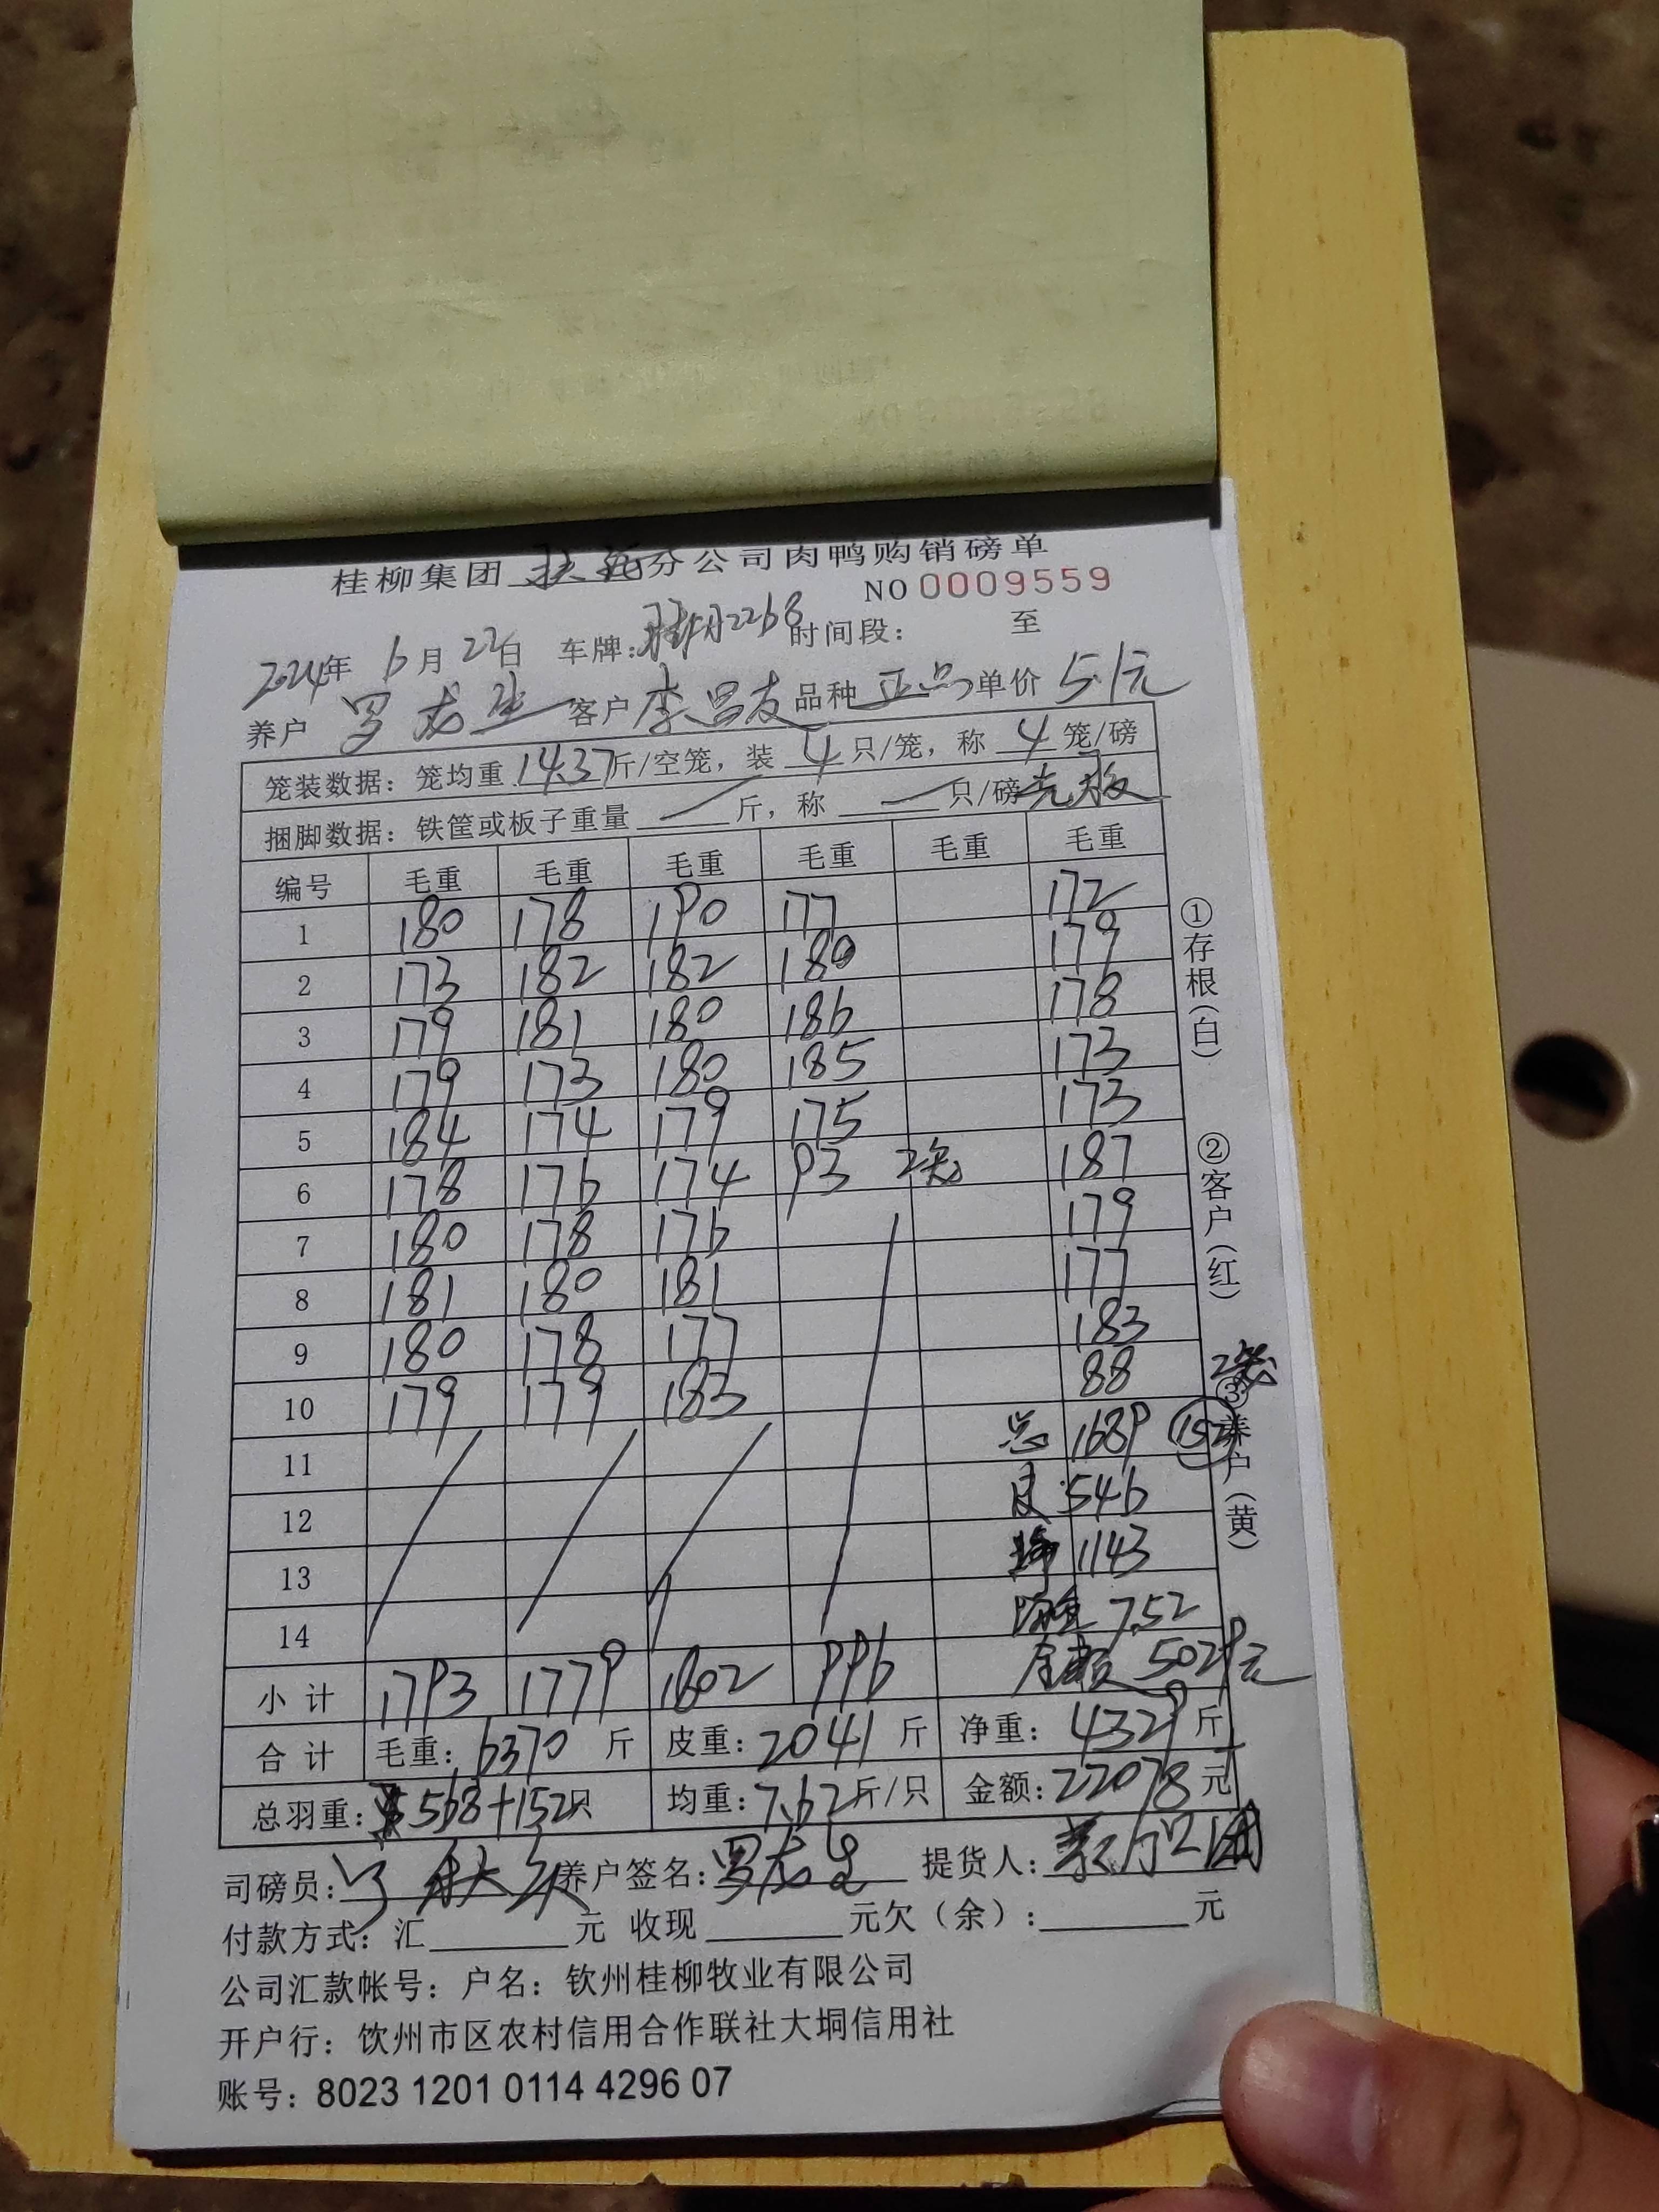 桂柳集团 分公司肉鸭购销磅单
NO 0009559
2024年 6月 22日 车牌: 2268 时间段: 至
养户 罗 客户 李昌友 品种 正品 单价 5.1元
笼装数据: 笼均重 14.37 斤/空笼, 装 4 只/笼, 称 4 笼/磅
捆脚数据: 铁筐或板子重量 斤, 称 只/磅
编号 毛重 毛重 毛重 毛重 毛重 毛重
1 180 178 190 177 172
2 173 182 182 180 179
3 179 181 180 186 178
4 179 173 180 185 173
5 184 174 179 175 173
6 178 176 174 93 2笼 187
7 180 178 176 179
8 181 180 181 177
9 180 178 177 183
10 179 179 183 88 2笼
11 总 1689 152
12 皮 546
13 净 1143
14 均重 7.52
小计 1793 1779 1802 996 金额 5029元
合计 毛重: 6370 斤 皮重: 2041 斤 净重: 4329 斤
总羽重: 568+152只 均重: 7.62 斤/只 金额: 22078 元
司磅员: 养户签名: 罗 提货人:
付款方式: 汇 元 收现 元欠(余): 元
公司汇款帐号: 户名: 钦州桂柳牧业有限公司
开户行: 钦州市区农村信用合作联社大垌信用社
账号: 8023 1201 0114 4296 07
①存根(白)
②客户(红)
③养户(黄)